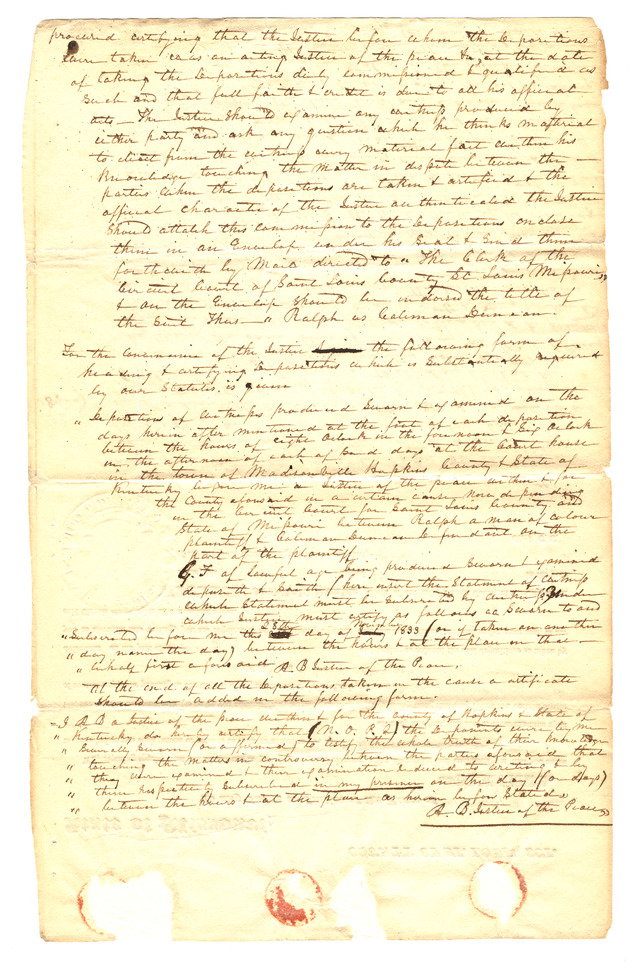 procured certifying that the Justice before whom the Depositions
were taken was an acting Justice of the peace &c, at the date
of taking the Depositions duly commissioned & qualified as
Such and that full faith & credit is due to all his official
acts — The Justice Should examine any witness produced by
either party and ask any question which he thinks material
to elicit from the witness every material fact within his
Knowledge touching the Matter in dispute between the —
parties When the depositions are taken & certified & the
official character of the Justice authenticated the Justice
Should attatch this commission to the Depositions enclose
them in an Envelop under his Seal & Send them
forthwith by Mail directed to "The Clerk of the
Circuit Court of Saint Louis County St Louis Missouri"
& on the Envelop Should be indorsed the title of
the Suit Thus — "Ralph vs Coleman Duncan.
For the convenience of the Justice the following form of
heading & certifying Depositions which is Substantially required
by our Statutes is given
"Depositions of witnesses produced Sworn & examined on the
days herein after mentioned at the foot of each deposition
between the hours of eight Oclock in the forenoon & Six Oclock
in the afternoon of each of Said days at the Court house
in the town of Madisonville Hopkins County & State of
Kentucky before me a Justice of the peace within & for
the County aforesaid in a certain cause now depending
in the Circuit Court for Saint Louis County and
State of Missouri between Ralph a man of colour
plaintiff & Coleman Duncan Defendant on the
part of the plaintiff
G. F of lawful age being produced Sworn & examined
deposeth & Saith (here insert the Statement of witness
which Statement must be Subscribed by witness & under
which Justice must certify as follows as Sworn to and
"Subscribed before me this day of 1833 (or if taken on another
" day name the day) between the hours & at the place in that
" behalf first aforesaid A. B Justice of the Peace.
At the end of all the Depositions taken in the cause a certificate
Should be added in the following form.
"I A B a Justice of the peace within & for the county of Hopkins & State of
" Kentucky do hereby certify that (N. O. P. Q) the Deponents were by me
" Severally Sworn (or affirmed) to testify the whole truth of their knowledge
" touching the matters in controversy between the parties aforesaid that
" they were examined & their examination reduced to writing & by
" them respectively Subscribed in my presence on the day (or days)
" between the hours & at the place as herein before Stated
A. B. Justice of the Peace"